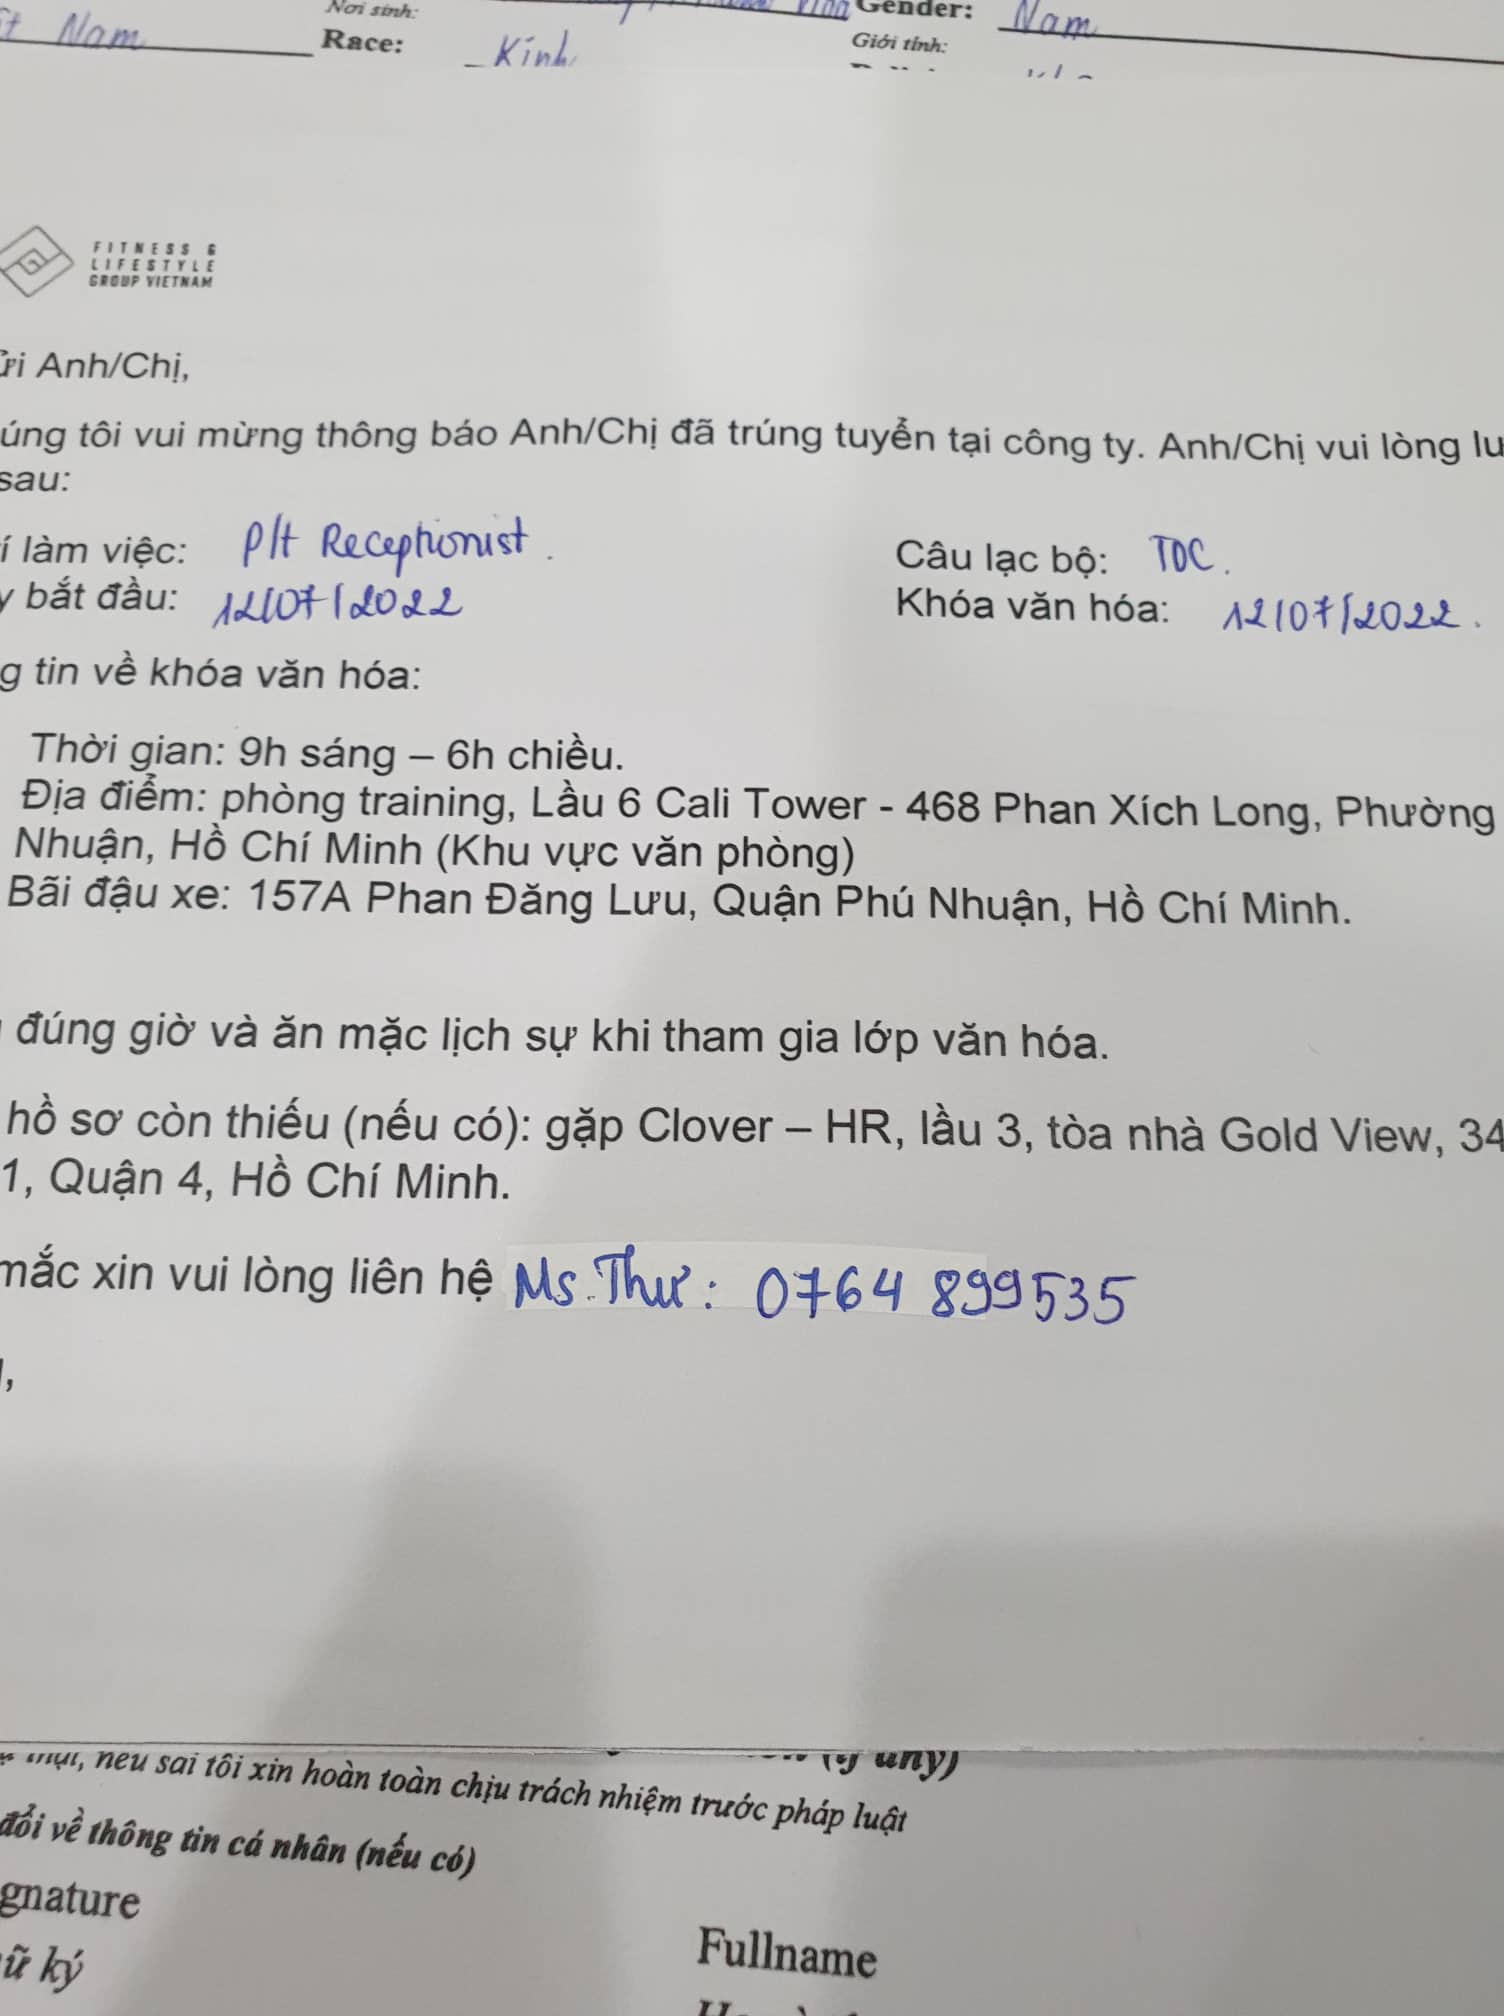 Nam
Nơi sinh:
Race: Kinh
Gender: Nam
Giới tính:
FITNESS &
LIFESTYLE
GROUP VIETNAM
ửi Anh/Chị,
úng tôi vui mừng thông báo Anh/Chị đã trúng tuyển tại công ty. Anh/Chị vui lòng lư
sau:
í làm việc: P/t Receptionist. Câu lạc bộ: TDC.
y bắt đầu: 12/07/2022 Khóa văn hóa: 12/07/2022.
g tin về khóa văn hóa:
Thời gian: 9h sáng – 6h chiều.
Địa điểm: phòng training, Lầu 6 Cali Tower - 468 Phan Xích Long, Phường
Nhuận, Hồ Chí Minh (Khu vực văn phòng)
Bãi đậu xe: 157A Phan Đăng Lưu, Quận Phú Nhuận, Hồ Chí Minh.
đúng giờ và ăn mặc lịch sự khi tham gia lớp văn hóa.
hồ sơ còn thiếu (nếu có): gặp Clover – HR, lầu 3, tòa nhà Gold View, 34
1, Quận 4, Hồ Chí Minh.
mắc xin vui lòng liên hệ Ms. Thư: 0764 899535
,
neu sai tôi xin hoàn toàn chịu trách nhiệm trước pháp luật
any)
đổi về thông tin cá nhân (nếu có)
gnature
ữ ký
Fullname